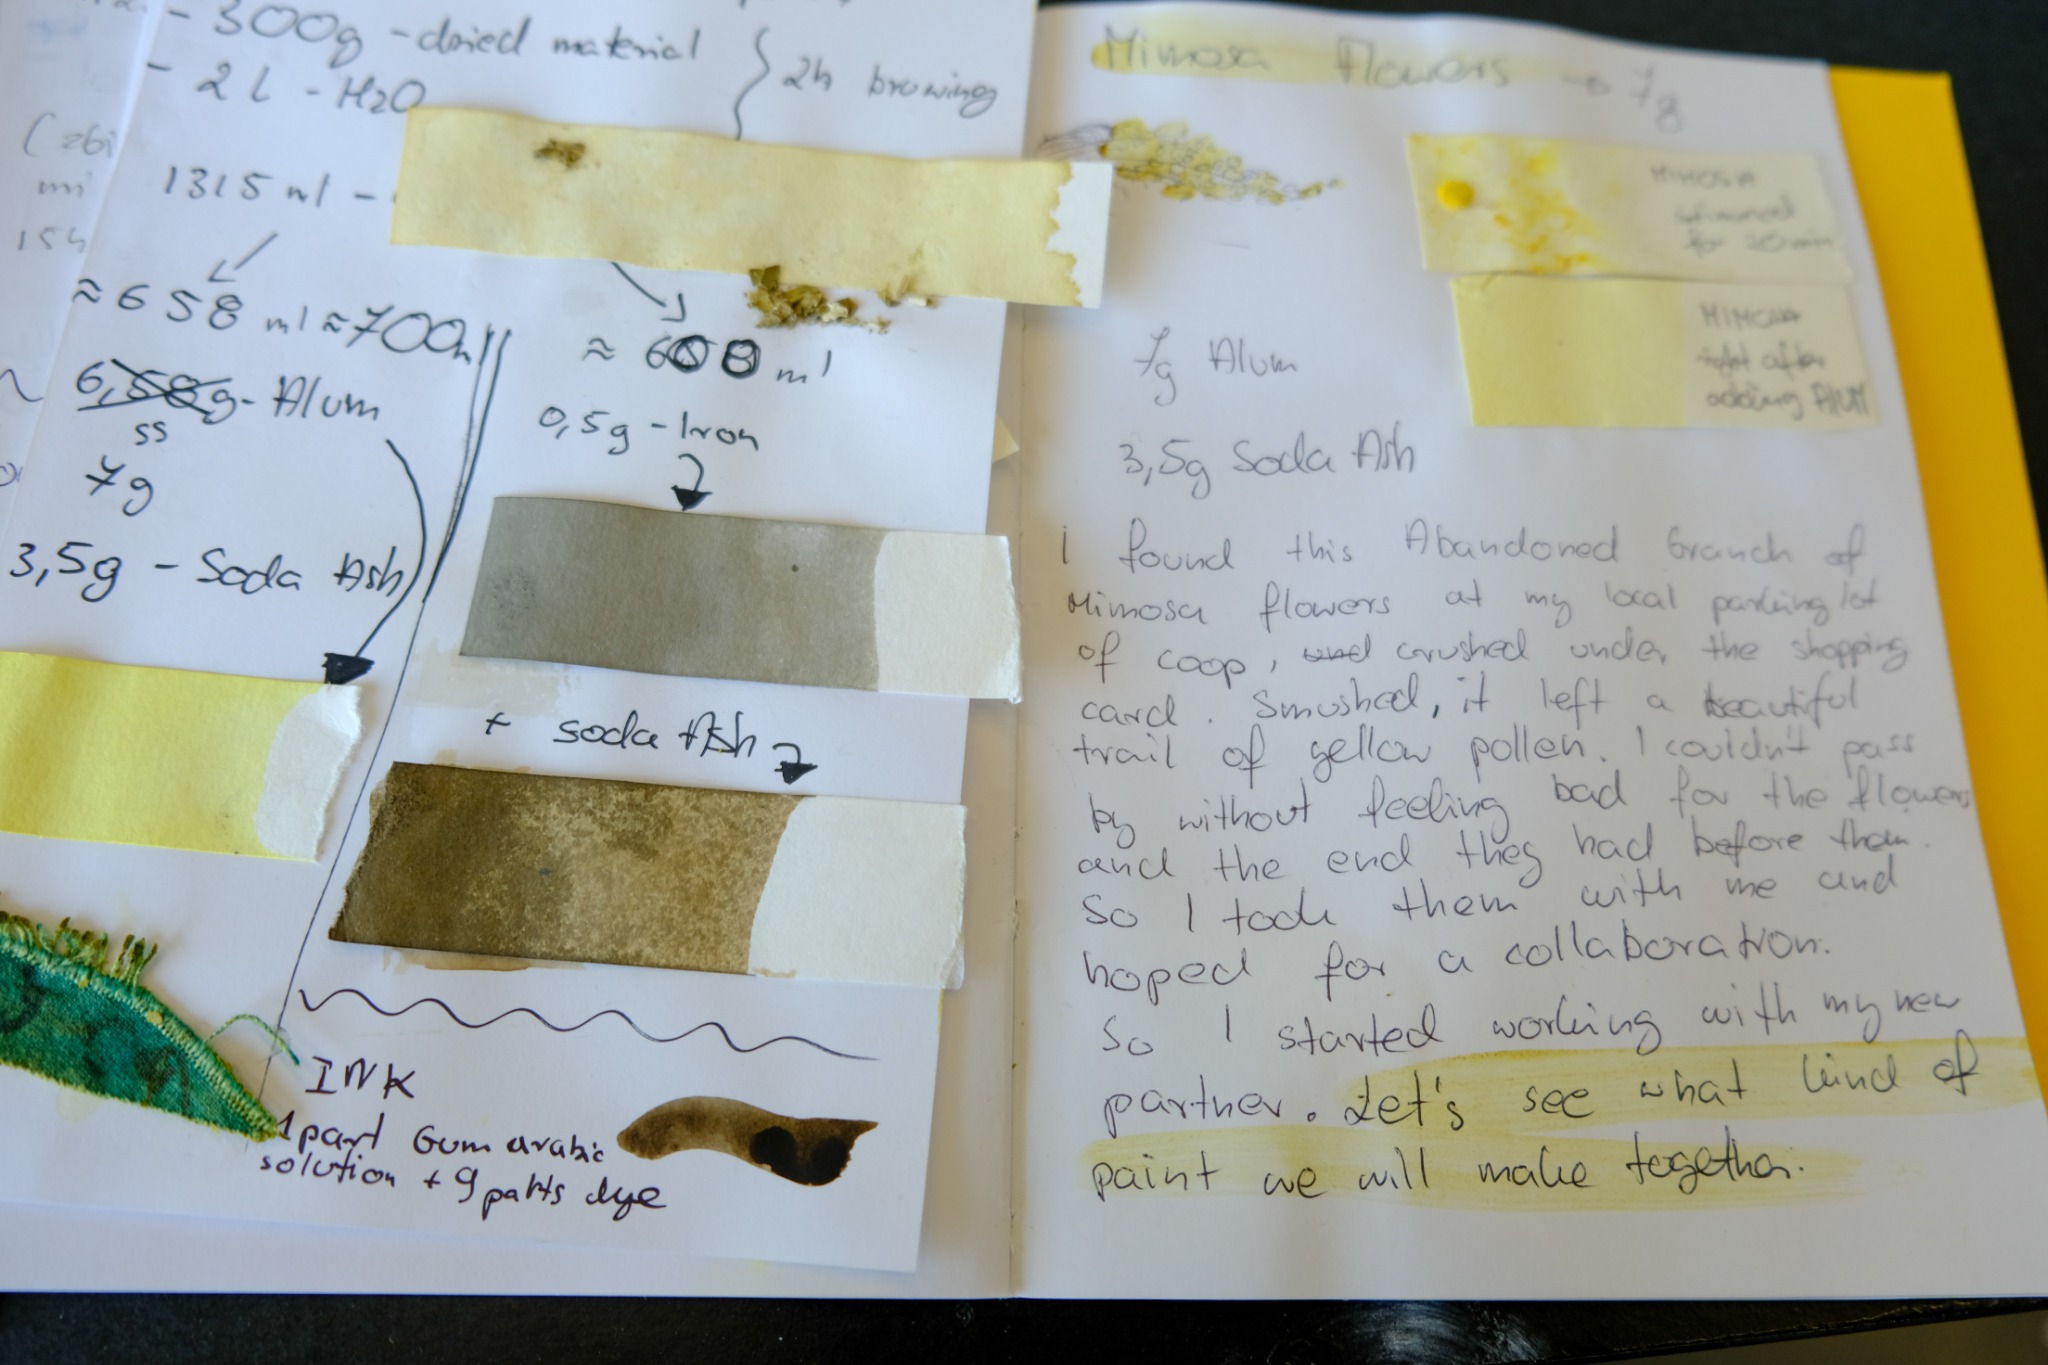 - 300g - dried material
- 2l - H2O
2h browing
1315 ml -
≈ 658 ml ≈ 700
6,58g - Alum
ss
7g
3,5g - Soda Ash
≈ 608 ml
0,5g - Iron
+ soda Ash
INK
1 part Gum arabic
solution + 9 parts dye
Mimosa Flowers → 7g
MIMOSA
simmered
for 20min
MIMOSA
right after
adding ALUM
7g Alum
3,5g Soda Ash
I found this Abandoned branch of
Mimosa flowers at my local parking lot
of coop, and crushed under the shopping
card. Smushed, it left a beautiful
trail of yellow pollen. I couldn't pass
by without feeling bad for the flowers
and the end they had before them.
So I took them with me and
hoped for a collaboration.
So I started working with my new
partner. Let's see what kind of
paint we will make together.